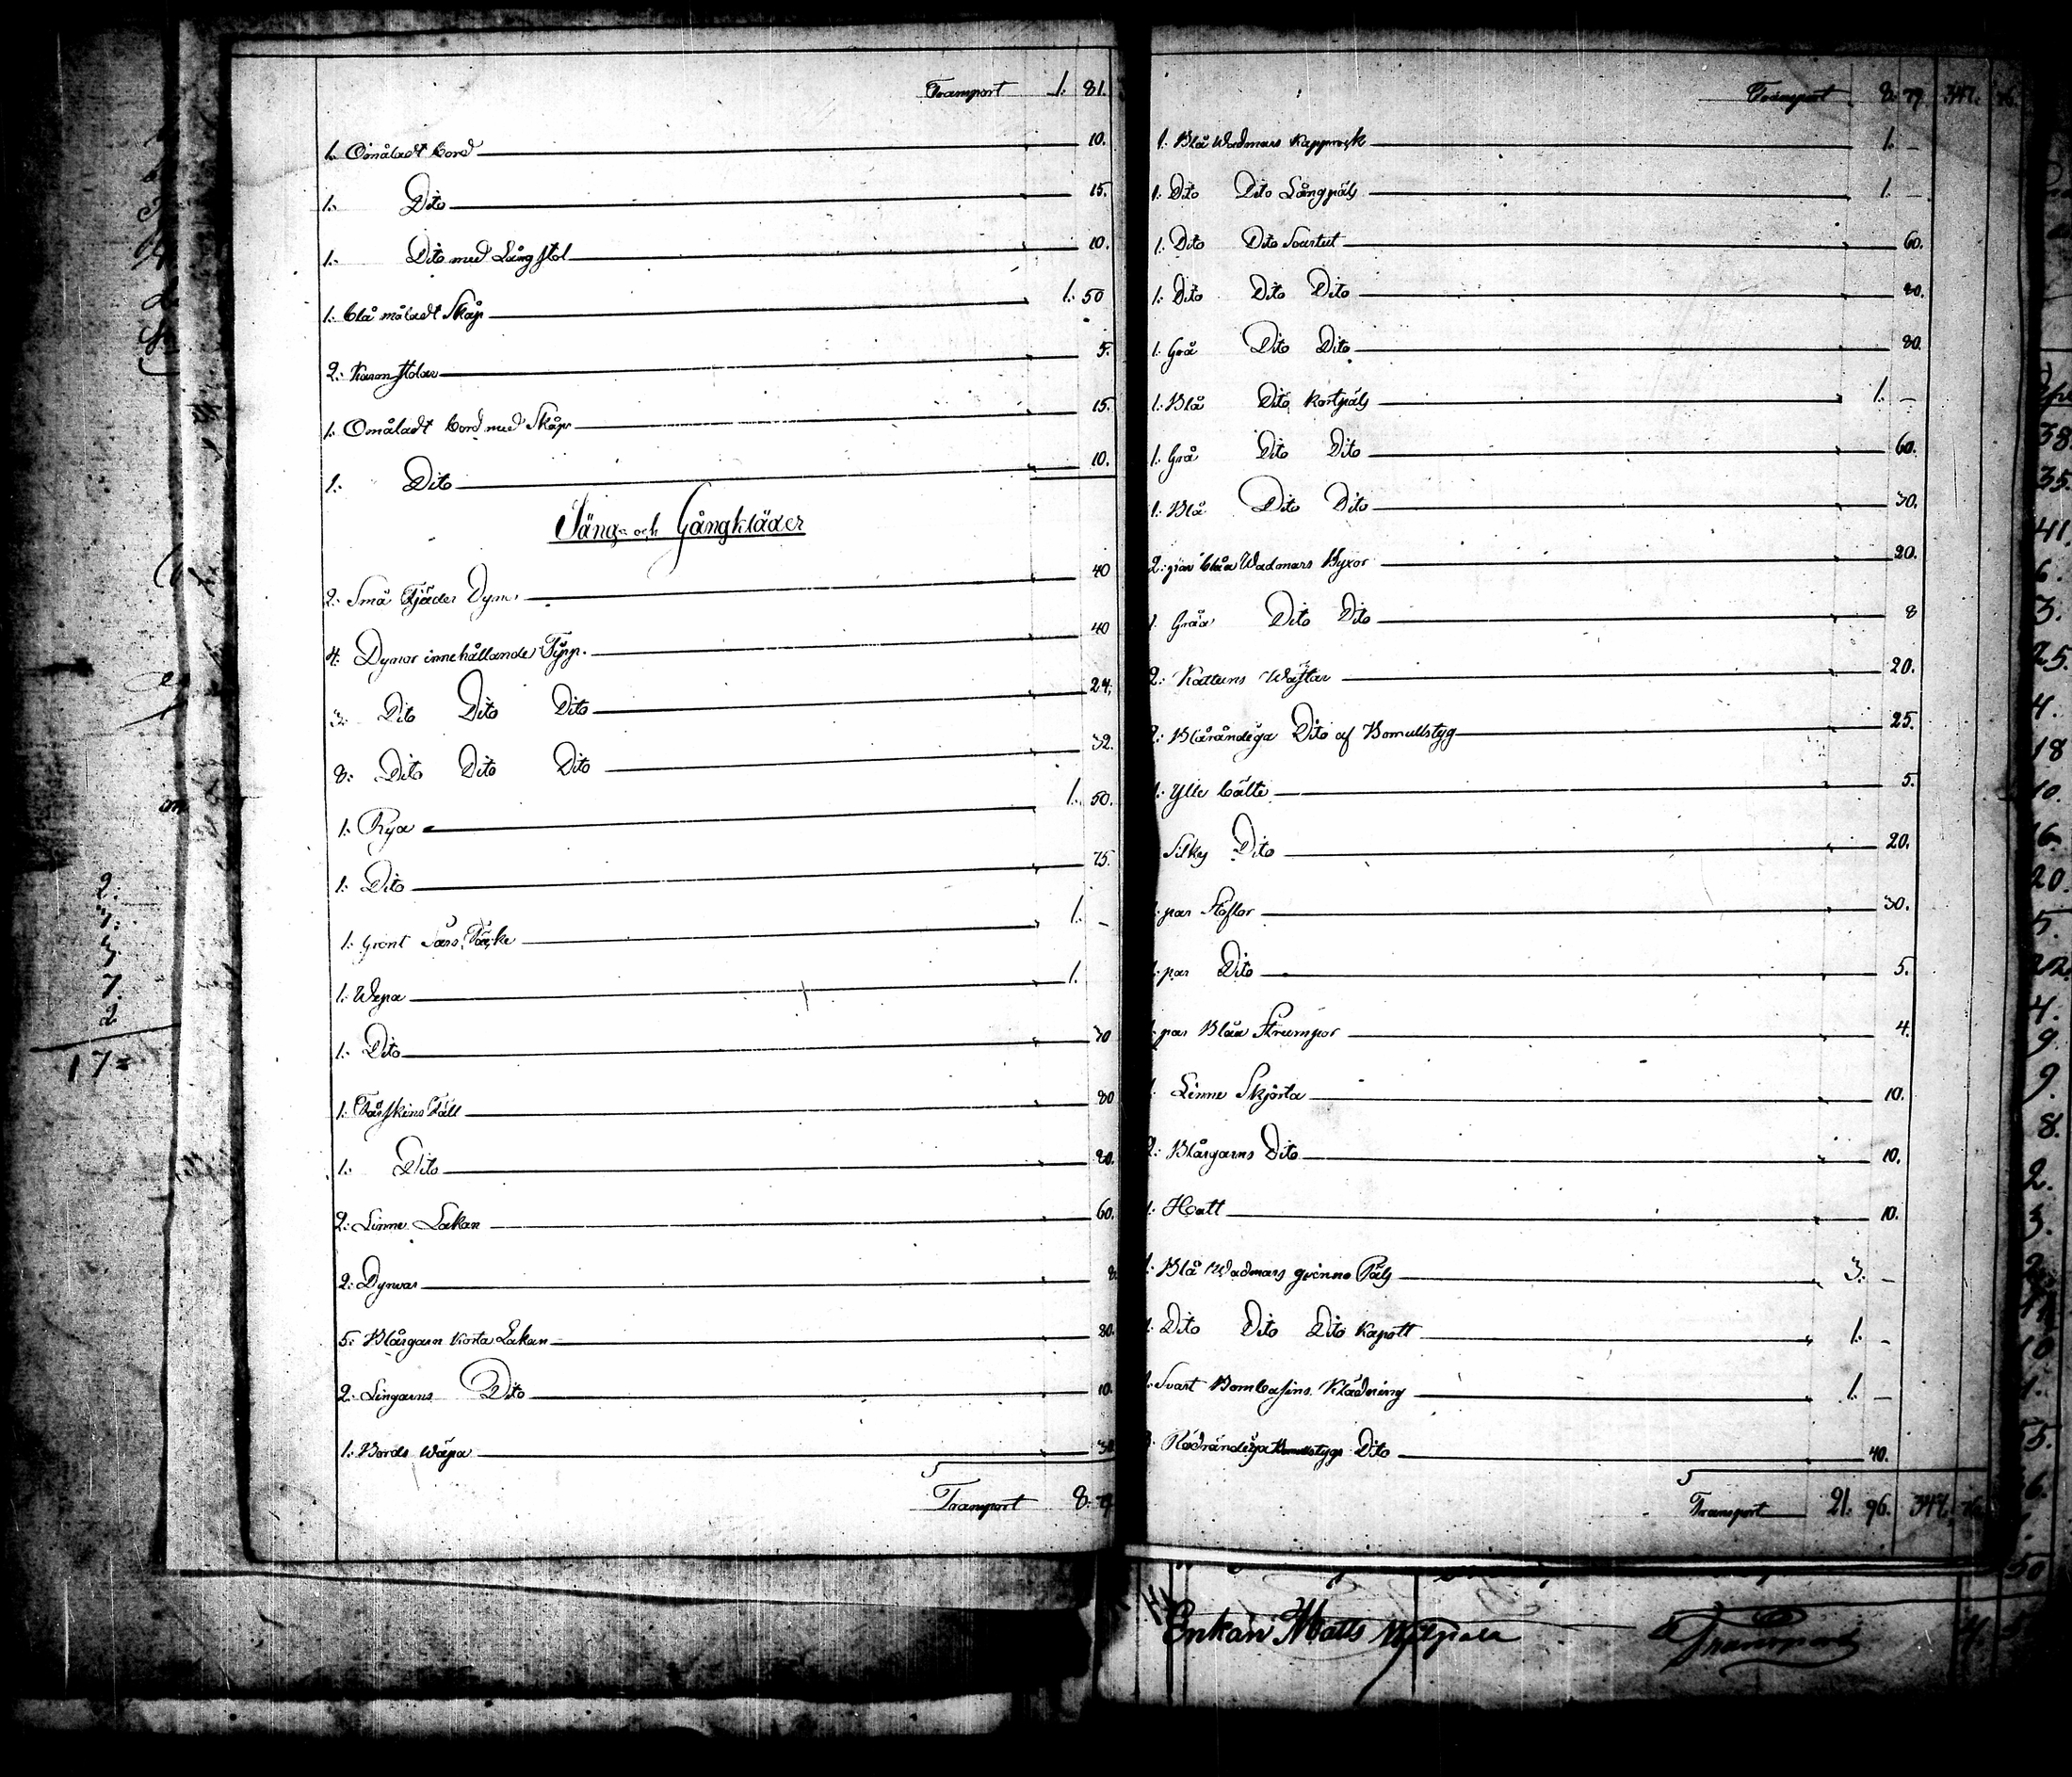 Transport 1. 81.
1. Omåladt bord 10.
1. Dito 15.
1. Dito med Långstol 10.
1. blå måladt Skåp 1. 50
2. Karm stolar 5.
1. Omåladt bord med Skåp 15.
1. Dito 10.
Säng- och Gångkläder
2. Små Fjäder Dynor 40
4. Dynor innehållande Typp. 40
3. Dito Dito Dito 24.
8. Dito Dito Dito 32.
1. Rya 1. 50.
1. Dito 75.
1. Grönt Sars Täcke 1. –
1. Wepa 1.
1. Dito 30
1. Fårskins Fäll 80
1. Dito 20.
2. Linne Lakan 60.
2. Dynvar 8
5. Blårgarn korta Lakan 80.
2. Lingarns Dito 10.
1. Bords Wäpa 30
Transport 8. 79
Transport 8. 79 347. 76.
1. Blå Wadmars Kapprock 1. –
1. Dito Dito Långpäls 1. –
1. Dito Dito Surtut 60.
1. Dito Dito Dito 40.
1. Grå Dito Dito 80.
1. Blå Dito kortpäls 1. –
1. Grå Dito Dito 60.
1. Blå Dito Dito 30.
2. par blåa Wadmars Byxor 20.
1. Gråa Dito Dito 8
2. Kattuns Wästar 20.
2. Blårandiga Dito af Bomullstyg 25.
1. Ylle bälte 5.
Silkes Dito 20.
1. par Stöflor 30.
1. par Dito 5.
1. par Blåa Strumpor 4.
1. Linne Skjorta 10.
2. Blårgarns Dito 10.
1. Hatt 10.
1. Blå Wadmars qvinno Päls 3. –
1. Dito Dito Dito Kapott 1. –
1. Svart Bombasins Klädning 1. –
Rödrandiga Bomullstygs Dito 40.
Transport 21. 96. 347. 76.
Enkan Matts
Transport
2.
3.
3
7
2
17=